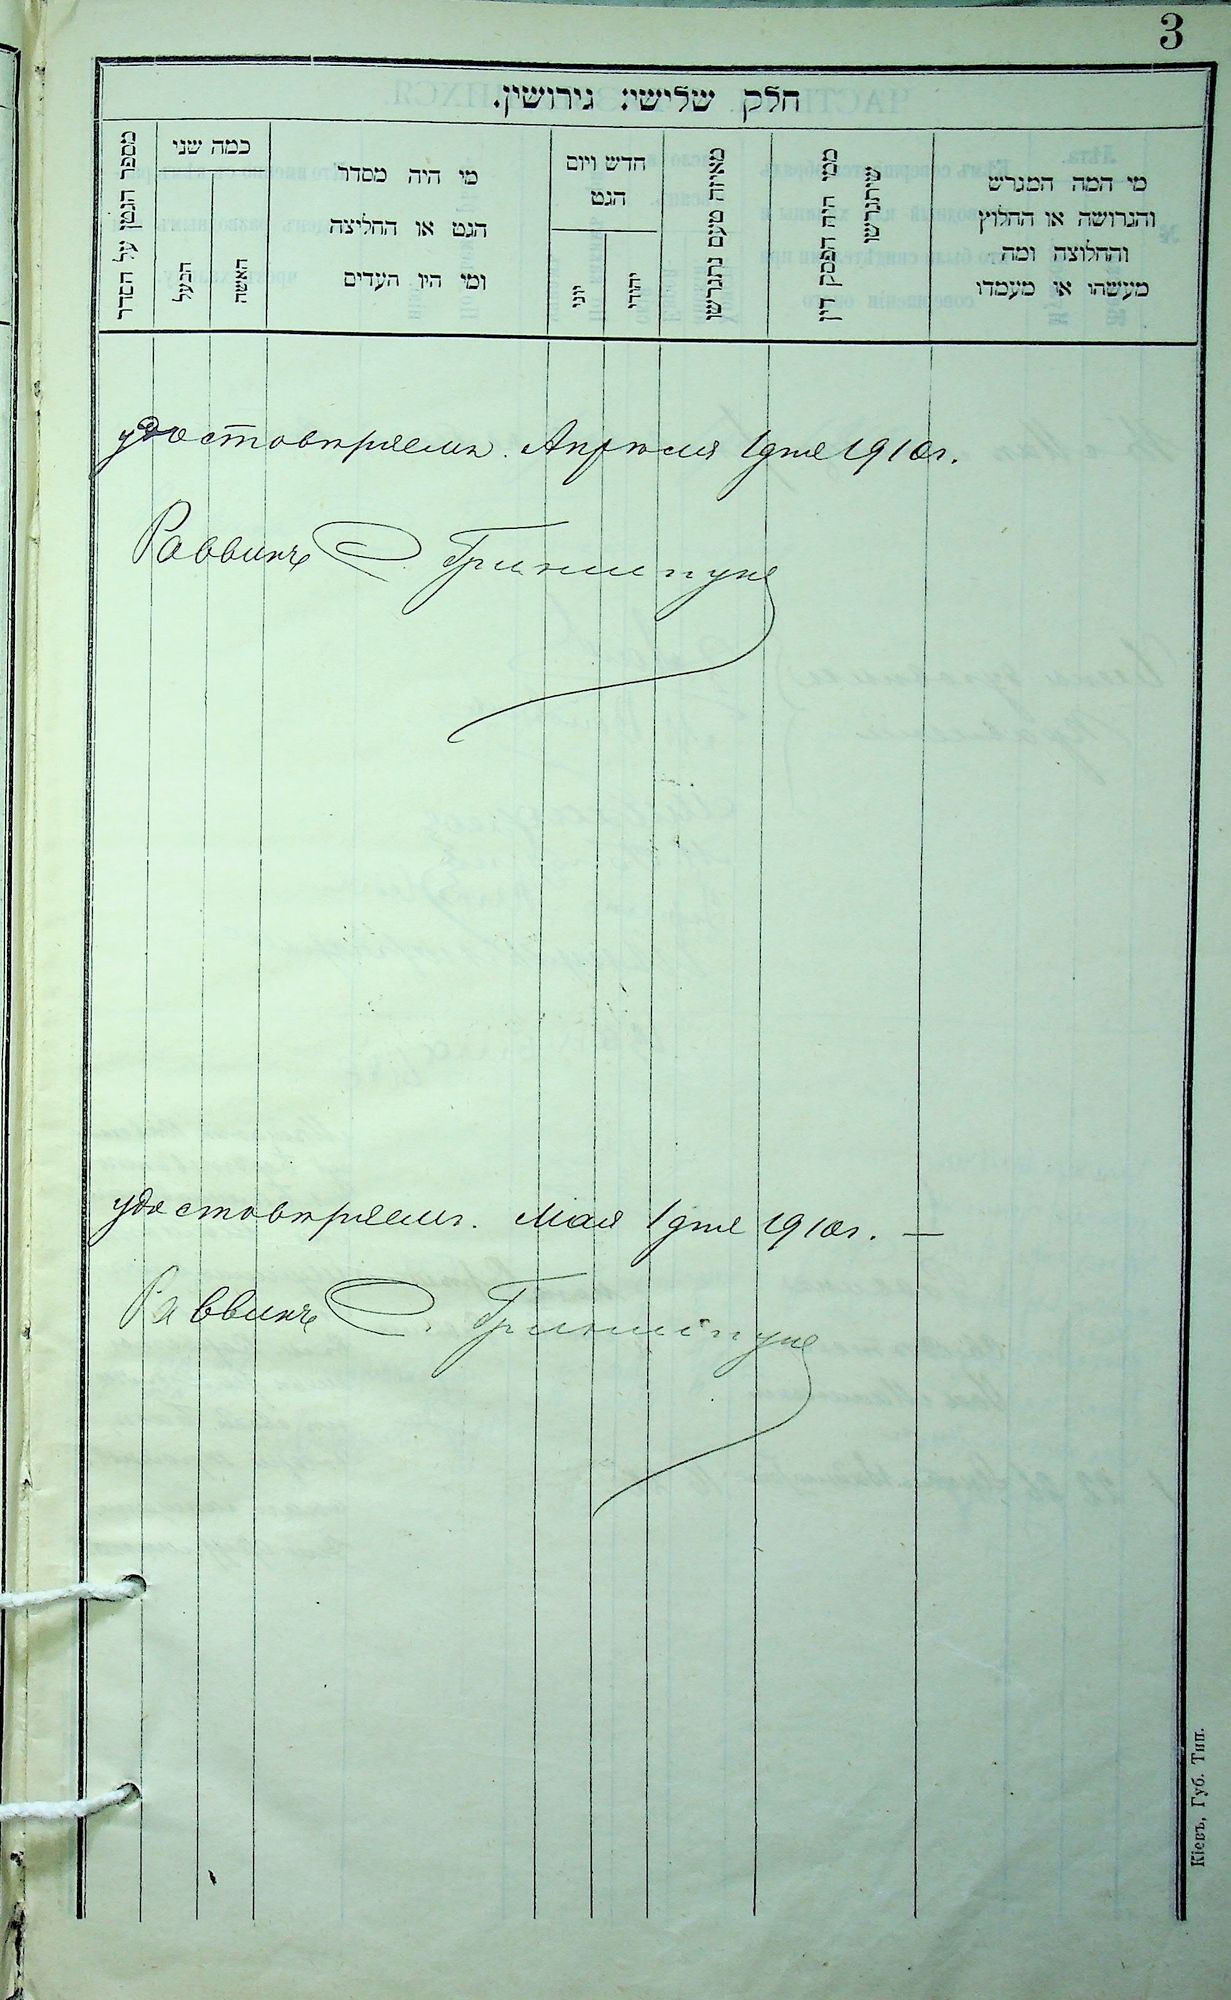 3
חלק שלישי: גירושין.
מי המה המגרש
והגרושה או החלוץ
והחלוצה ומה
מעשהו או מעמדו
ממי היה הפסק דין
שיתגרשו
מאיזה טעם נתגרשו
חדש ויום
הגט
יהודי
יוני
מי היה מסדר
הגט או החליצה
ומי היו העדים
כמה שני
האשה
הבעל
מספר הגטן על הסדר
удостовѣряемъ. Апрѣля 1 дня 1910 г.
Раввинъ
удостовѣряемъ. Мая 1 дня 1910 г. —
Раввинъ
Кіевъ, Губ. Тип.